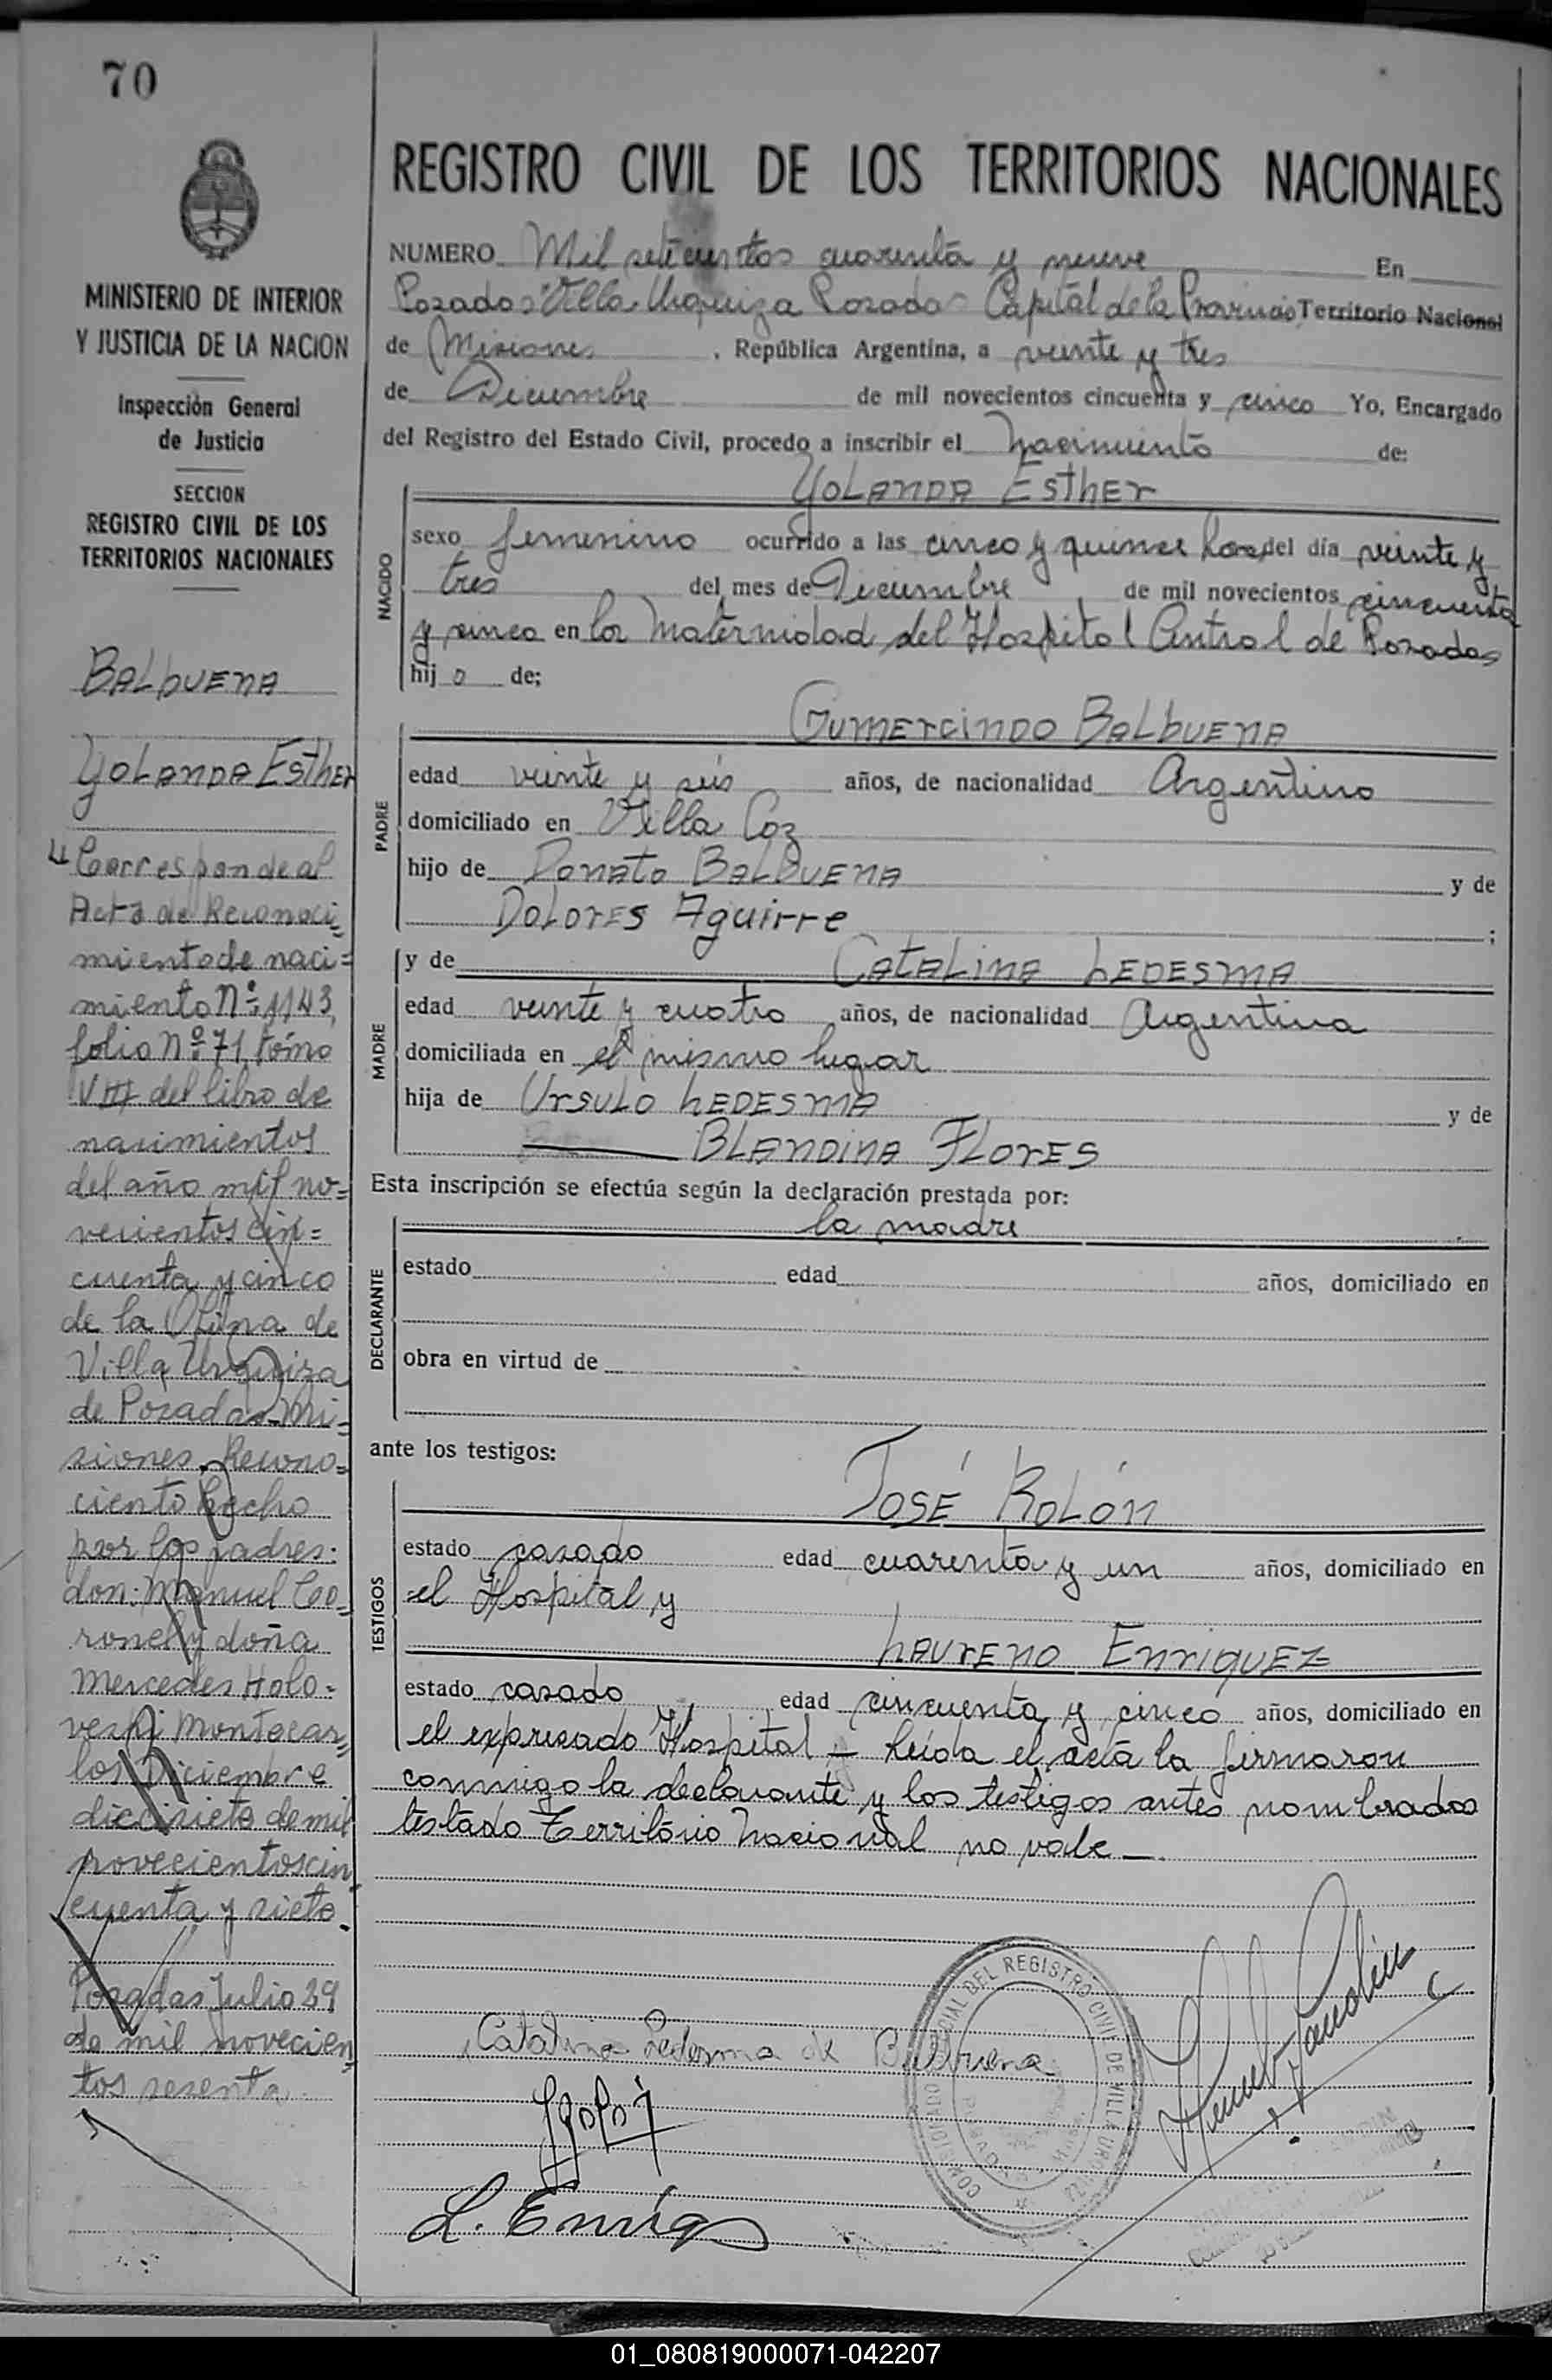 70
MINISTERIO DE INTERIOR
Y JUSTICIA DE LA NACION
Inspección General
de Justicia
SECCION
REGISTRO CIVIL DE LOS
TERRITORIOS NACIONALES
BALbUENA
YOLANDA ESTHER
Corresponde al
Acta de Reconoci=
miento de naci=
miento Nº 1143,
folio Nº 71, tómo
VIII del libro de
nacimientos
del año mil no=
vecientos cin=
cuenta y cinco
de la Ofina de
Villa Urquiza
de Posadas-Mi=
siones. Recono=
ciento hecho
por los padres:
don: Manuel Co=
ronel y doña
Mercedes Holo=
Montecar=
los Diciembre
diecisiete de mil
novecientos cin
cuenta y siete.
Posadas Julio 29
de mil novecien
tos sesenta
REGISTRO CIVIL DE LOS TERRITORIOS NACIONALES
NUMERO Mil setecientos cuarenta y nueve En
Posadas Villa Urquiza Posadas Capital de la Provincia Territorio Nacional
de Misiones , República Argentina, a veinte y tres
de Diciembre de mil novecientos cincuenta y cinco Yo, Encargado
del Registro del Estado Civil, procedo a inscribir el nacimiento de:
YOLANDA ESTHER
NACIDO
sexo femenino ocurrido a las cinco y quince horas del día veinte y
tres del mes de Diciembre de mil novecientos cincuenta
y cinco en la Maternidad del Hospital Central de Posadas
hij a de;
GUMERCINDO BALbUENA
PADRE
edad veinte y seis años, de nacionalidad Argentino
domiciliado en Villa Coz
hijo de Donato BALbUENA y de
DOLORES Aguirre ;
y de CATALINA LEDESMA
MADRE
edad veinte y cuatro años, de nacionalidad Argentina
domiciliada en el mismo lugar
hija de URSULO LEDESMA y de
BLANDINA FLORES
Esta inscripción se efectúa según la declaración prestada por:
la madre
DECLARANTE
estado edad años, domiciliado en
obra en virtud de
ante los testigos:
JOSÉ ROLÓN
TESTIGOS
estado casado edad cuarenta y un años, domiciliado en
el Hospital y
LAURENO ENRIQUEZ
estado casado edad cincuenta y cinco años, domiciliado en
el expresado Hospital - Leída el acta la firmaron
conmigo la declarante y los testigos antes nombrados
testado Territorio Nacional no vale -
Catalina Ledesma de Balbuena
L. Enriq
COMISIONADO DEL REGISTRO CIVIL DE VILLA URQUIZA
POSADAS
01_080819000071-042207